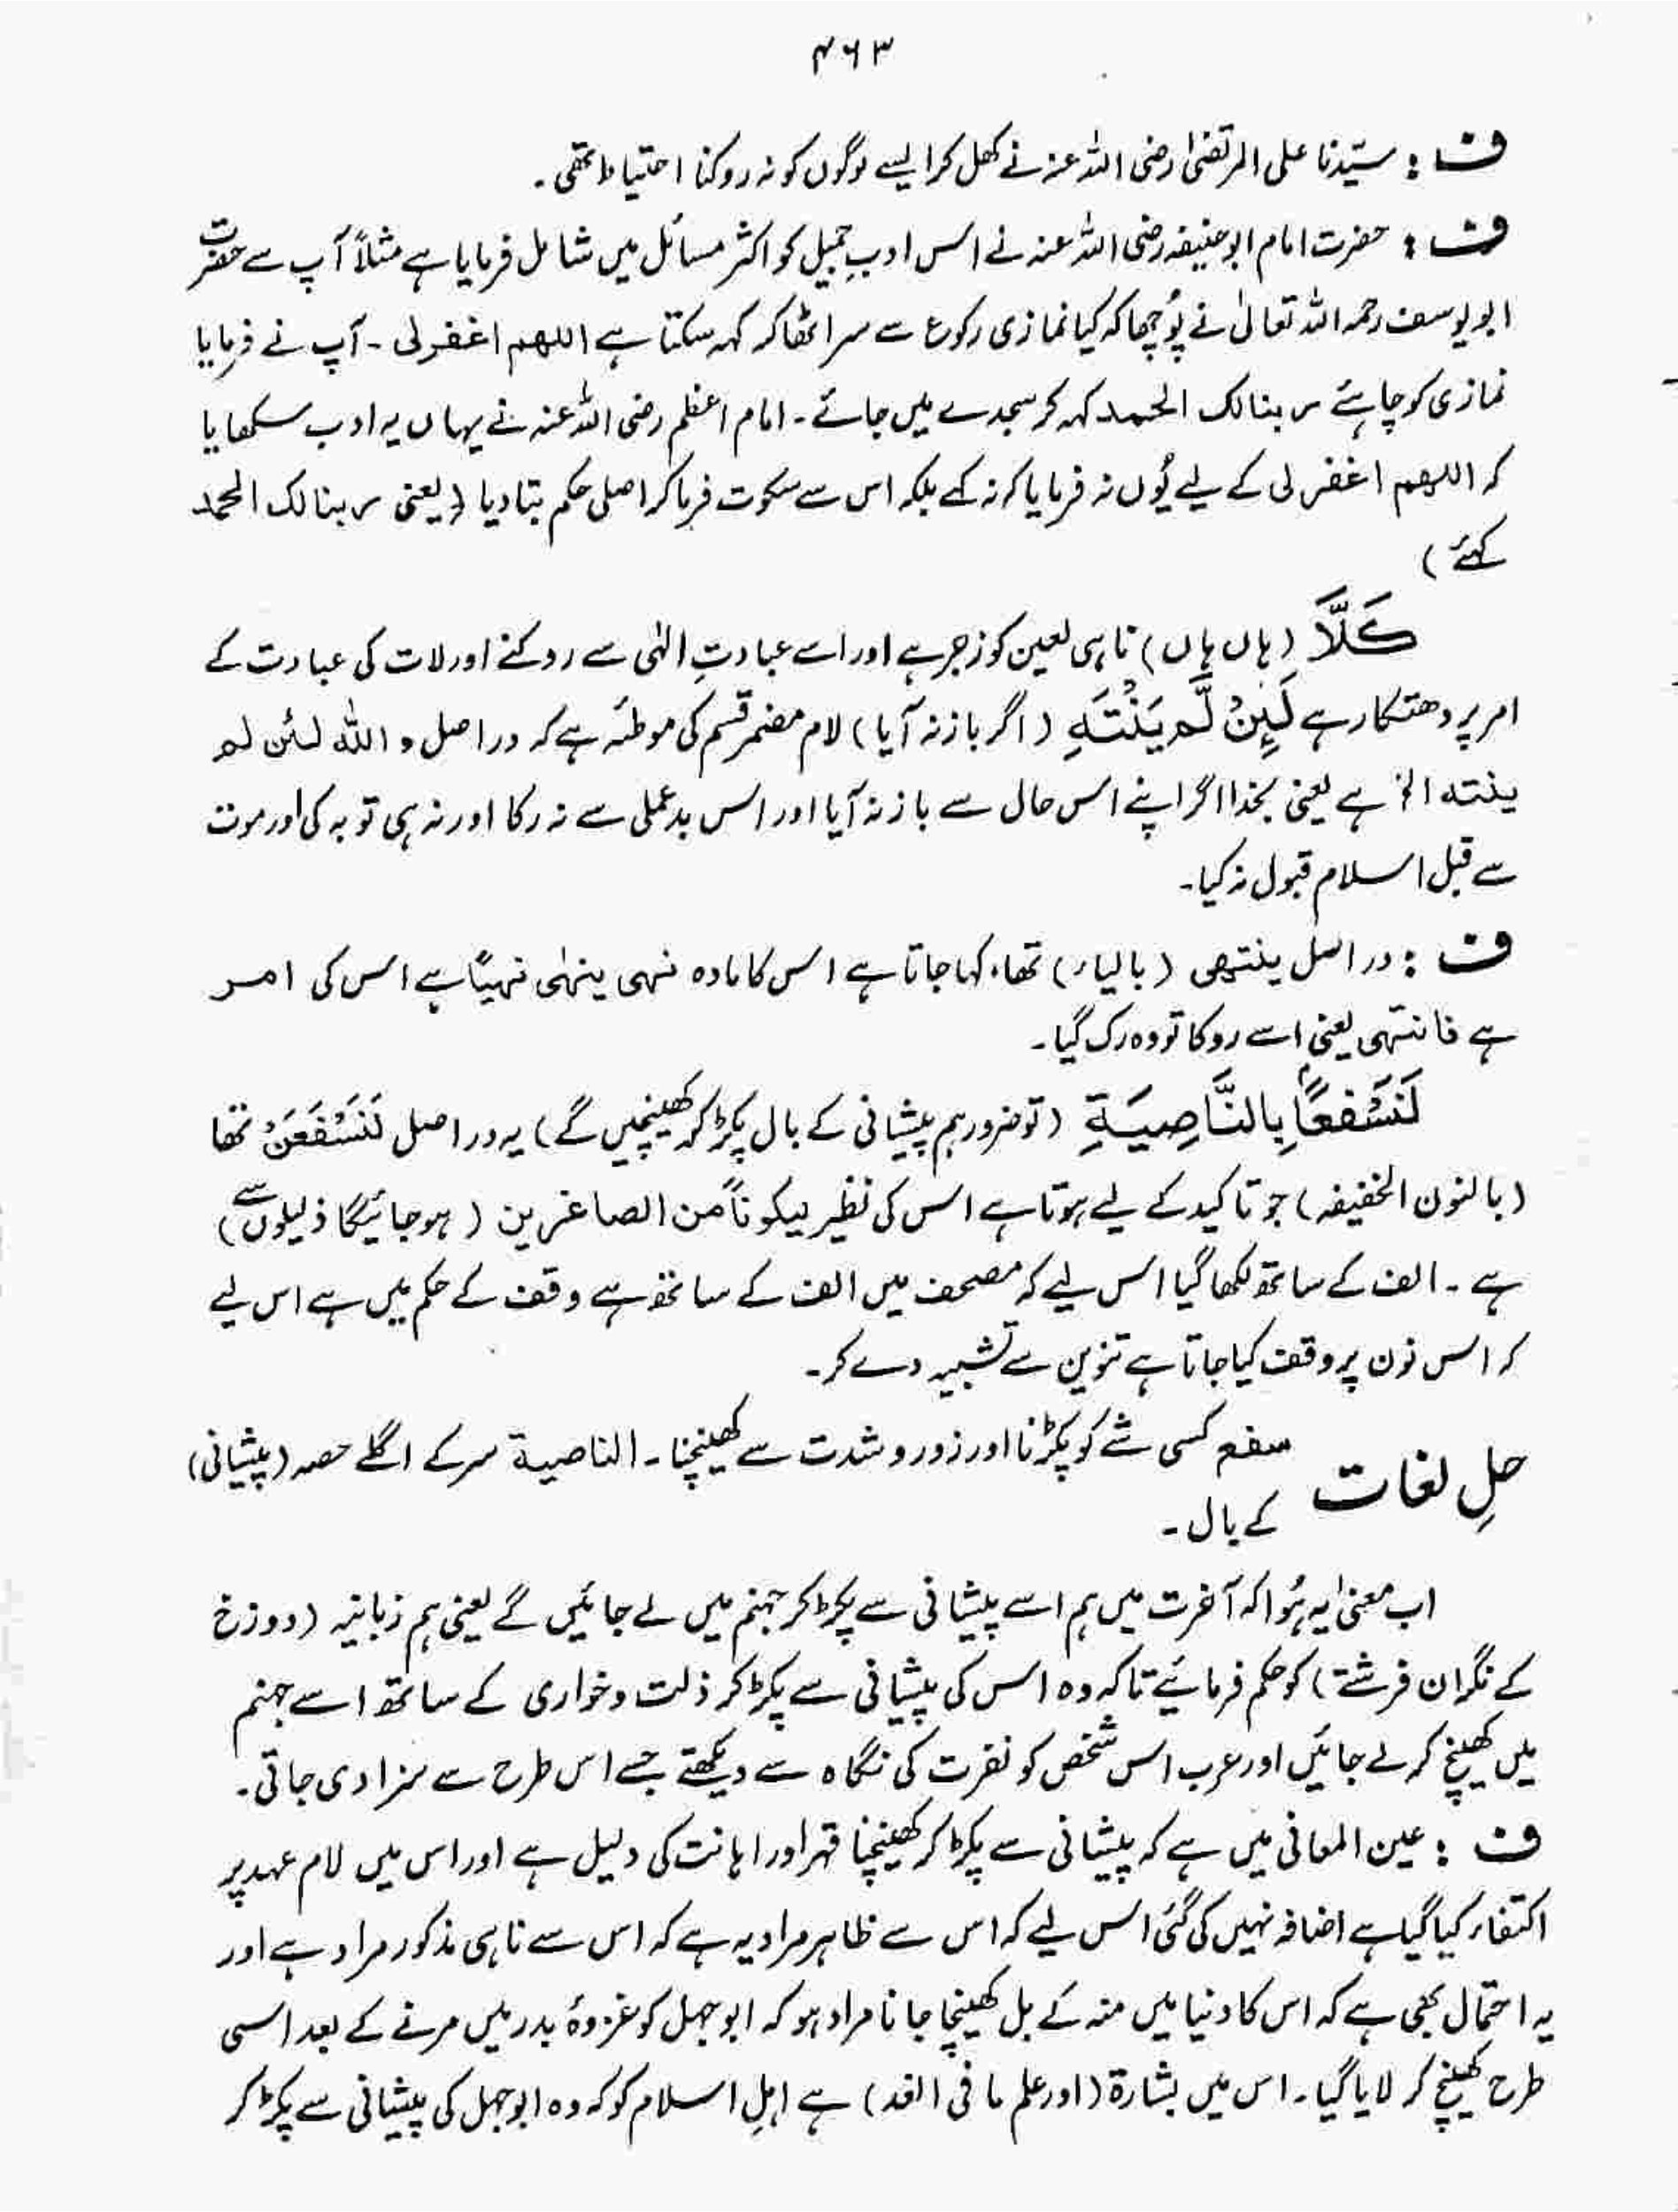 ۴۶۳
ف : سیّدنا علی المرتضیٰ رضی اللہ عنہ نے کھل کر ایسے لوگوں کو نہ روکنا احتیاط تھی ۔
ف : حضرت امام ابوحنیفہ رضی اللہ عنہ نے اس ادبِ جمیل کو اکثر مسائل میں شامل فرمایا ہے مثلاً آپ سے حضرت
ابویوسف رحمہ اللہ تعالیٰ نے پُوچھا کہ کیا نمازی رکوع سے سر اٹھا کر کہہ سکتا ہے اللھم اغفر لی ۔ آپ نے فرمایا
نمازی کو چاہئے ربنا لک الحمد کہہ کر سجدے میں جائے ۔ امام اعظم رضی اللہ عنہ نے یہاں یہ ادب سکھایا
کہ اللھم اغفر لی کے لیے یُوں نہ فرمایا کہ نہ کہے بلکہ اس سے سکوت فرما کر اصلی حکم بتا دیا (یعنی ربنا لک الحمد
کہئے )
كَلَّا (ہاں ہاں) ناہی لعین کو زجر ہے اور اسے عبادتِ الٰہی سے روکنے اور لات کی عبادت کے
امر پر دھتکار ہے لَىِٕنْ لَّمْ یَنْتَهِ (اگر باز نہ آیا) لام مضمر قسم کی موطئہ ہے کہ دراصل و اللہ لئن لم
ینتہ الخ ہے یعنی بخدا اگر اپنے اس حال سے باز نہ آیا اور اس بدعملی سے نہ رکا اور نہ ہی توبہ کی اور موت
سے قبل اسلام قبول نہ کیا ۔
ف : دراصل ینتھی (بالیاء) تھا، کہا جاتا ہے اس کا مادہ نہی ینہیٰ نہیًا ہے اس کی امر
ہے فانتہی یعنی اسے روکا تو وہ رک گیا ۔
لَنَسْفَعًۢا بِالنَّاصِیَةِ (تو ضرور ہم پیشانی کے بال پکڑ کر کھینچیں گے) یہ دراصل لَنَسْفَعَنْ تھا
(بالنون الخفیفہ) جو تاکید کے لیے ہوتا ہے اس کی نظیر لیکوناً من الصاغرین (ہوجائیگا ذلیلوں سے)
ہے ۔ الف کے ساتھ لکھا گیا اس لیے کہ مصحف میں الف کے ساتھ ہے وقف کے حکم میں ہے اس لیے
کہ اس نون پر وقف کیا جاتا ہے تنوین سے تشبیہ دے کر ۔
حلِ لغات سفع کسی شے کو پکڑنا اور زور و شدت سے کھینچنا ۔ الناصیة سر کے اگلے حصہ (پیشانی)
کے بال ۔
اب معنیٰ یہ ہُوا کہ آخرت میں ہم اسے پیشانی سے پکڑ کر جہنم میں لے جائیں گے یعنی ہم زبانیہ (دوزخ
کے نگران فرشتے) کو حکم فرمائیے تاکہ وہ اس کی پیشانی سے پکڑ کر ذلت و خواری کے ساتھ اسے جہنم
میں کھینچ کر لے جائیں اور عرب اس شخص کو نفرت کی نگاہ سے دیکھتے جسے اس طرح سے سزا دی جاتی ۔
ف : عین المعانی میں ہے کہ پیشانی سے پکڑ کر کھینچنا قہر اور اہانت کی دلیل ہے اور اس میں لام عہد پر
اکتفاء کیا گیا ہے اضافہ نہیں کی گئی اس لیے کہ اس سے ظاہر مراد یہ ہے کہ اس سے ناہی مذکور مراد ہے اور
یہ احتمال بھی ہے کہ اس کا دنیا میں منہ کے بل کھینچا جانا مراد ہو کہ ابوجہل کو غزوۂ بدر میں مرنے کے بعد اسی
طرح کھینچ کر لایا گیا ۔ اس میں بشارة (اور علم ما فی الغد) ہے اہلِ اسلام کو کہ وہ ابوجہل کی پیشانی سے پکڑ کر